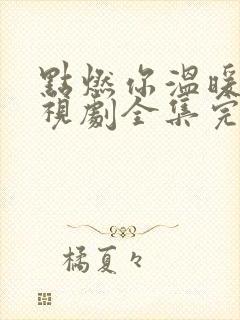 點燃你溫暖
視劇全集完
橘夏々